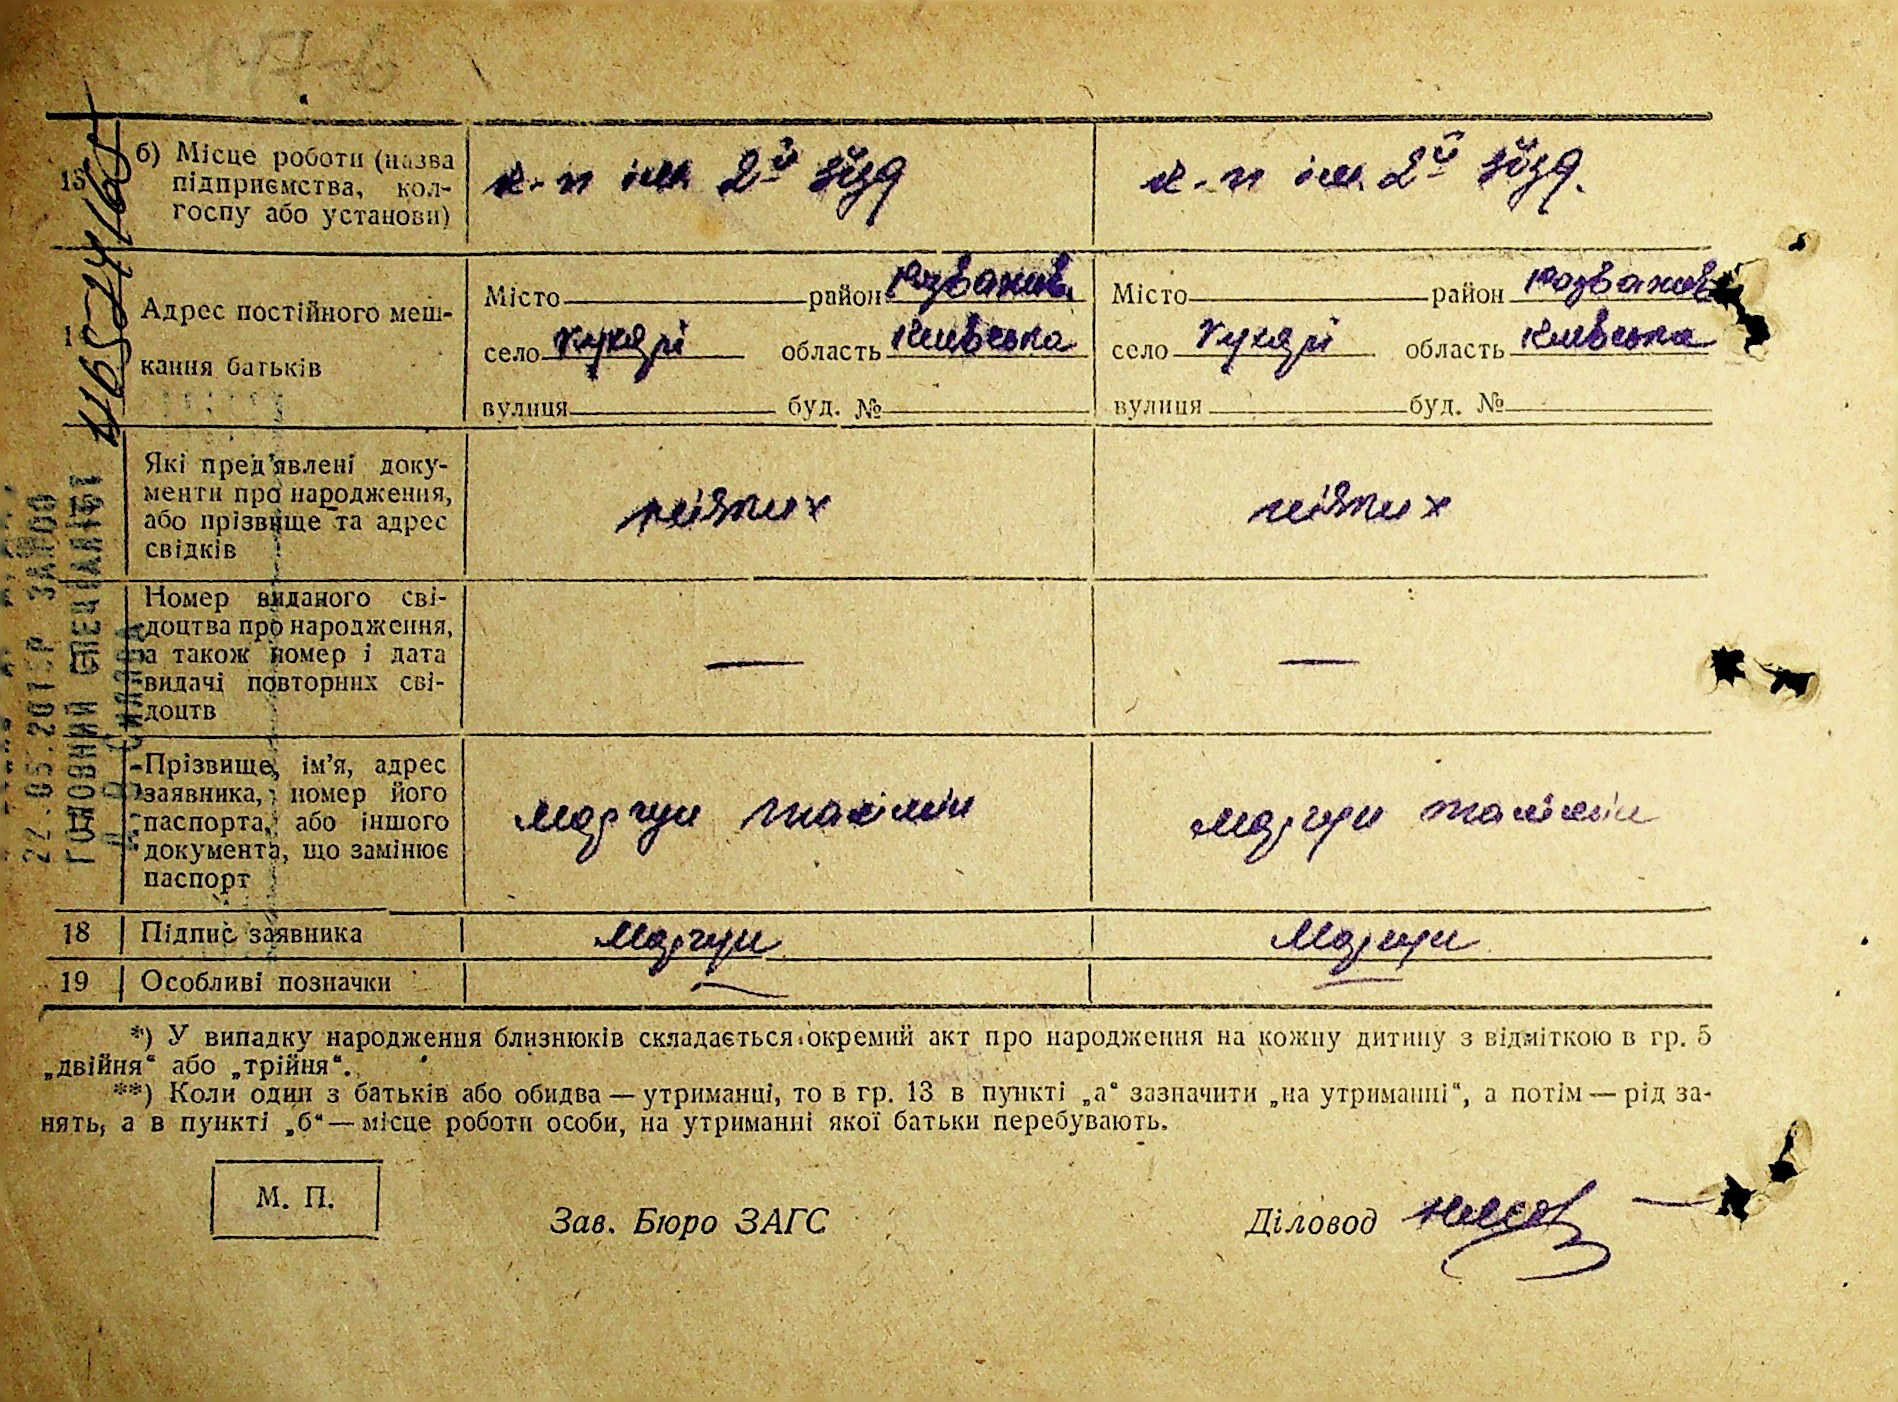 13
б) Місце роботи (назва
підприємства, кол-
госпу або установи)
к-п ім 2й зїзд
к-п ім 2й зїзд.
Адрес постійного меш-
кання батьків
Місто район Розважів.
село Кухарі область Київська
вулиця буд. №
Місто район Розважів
село Кухарі область Київська
вулиця буд. №
Які пред'явлені доку-
менти про народження,
або прізвище та адрес
свідків
Номер виданого сві-
доцтва про народження,
а також номер і дата
видачі повторних сві-
доцтв
—
—
17
Прізвище, ім'я, адрес
заявника, номер його
паспорта, або іншого
документа, що замінює
паспорт
18
Підпис заявника
19
Особливі позначки
*) У випадку народження близнюків складається окремий акт про народження на кожну дитину з відміткою в гр. 5
„двійня“ або „трійня“.
**) Коли один з батьків або обидва — утриманці, то в гр. 13 в пункті „а“ зазначити „на утриманні“, а потім — рід за-
нять, а в пункті „б“ — місце роботи особи, на утриманні якої батьки перебувають.
М. П.
Зав. Бюро ЗАГС
Діловод
ГОЛОВНИЙ СПЕЦІАЛІСТ